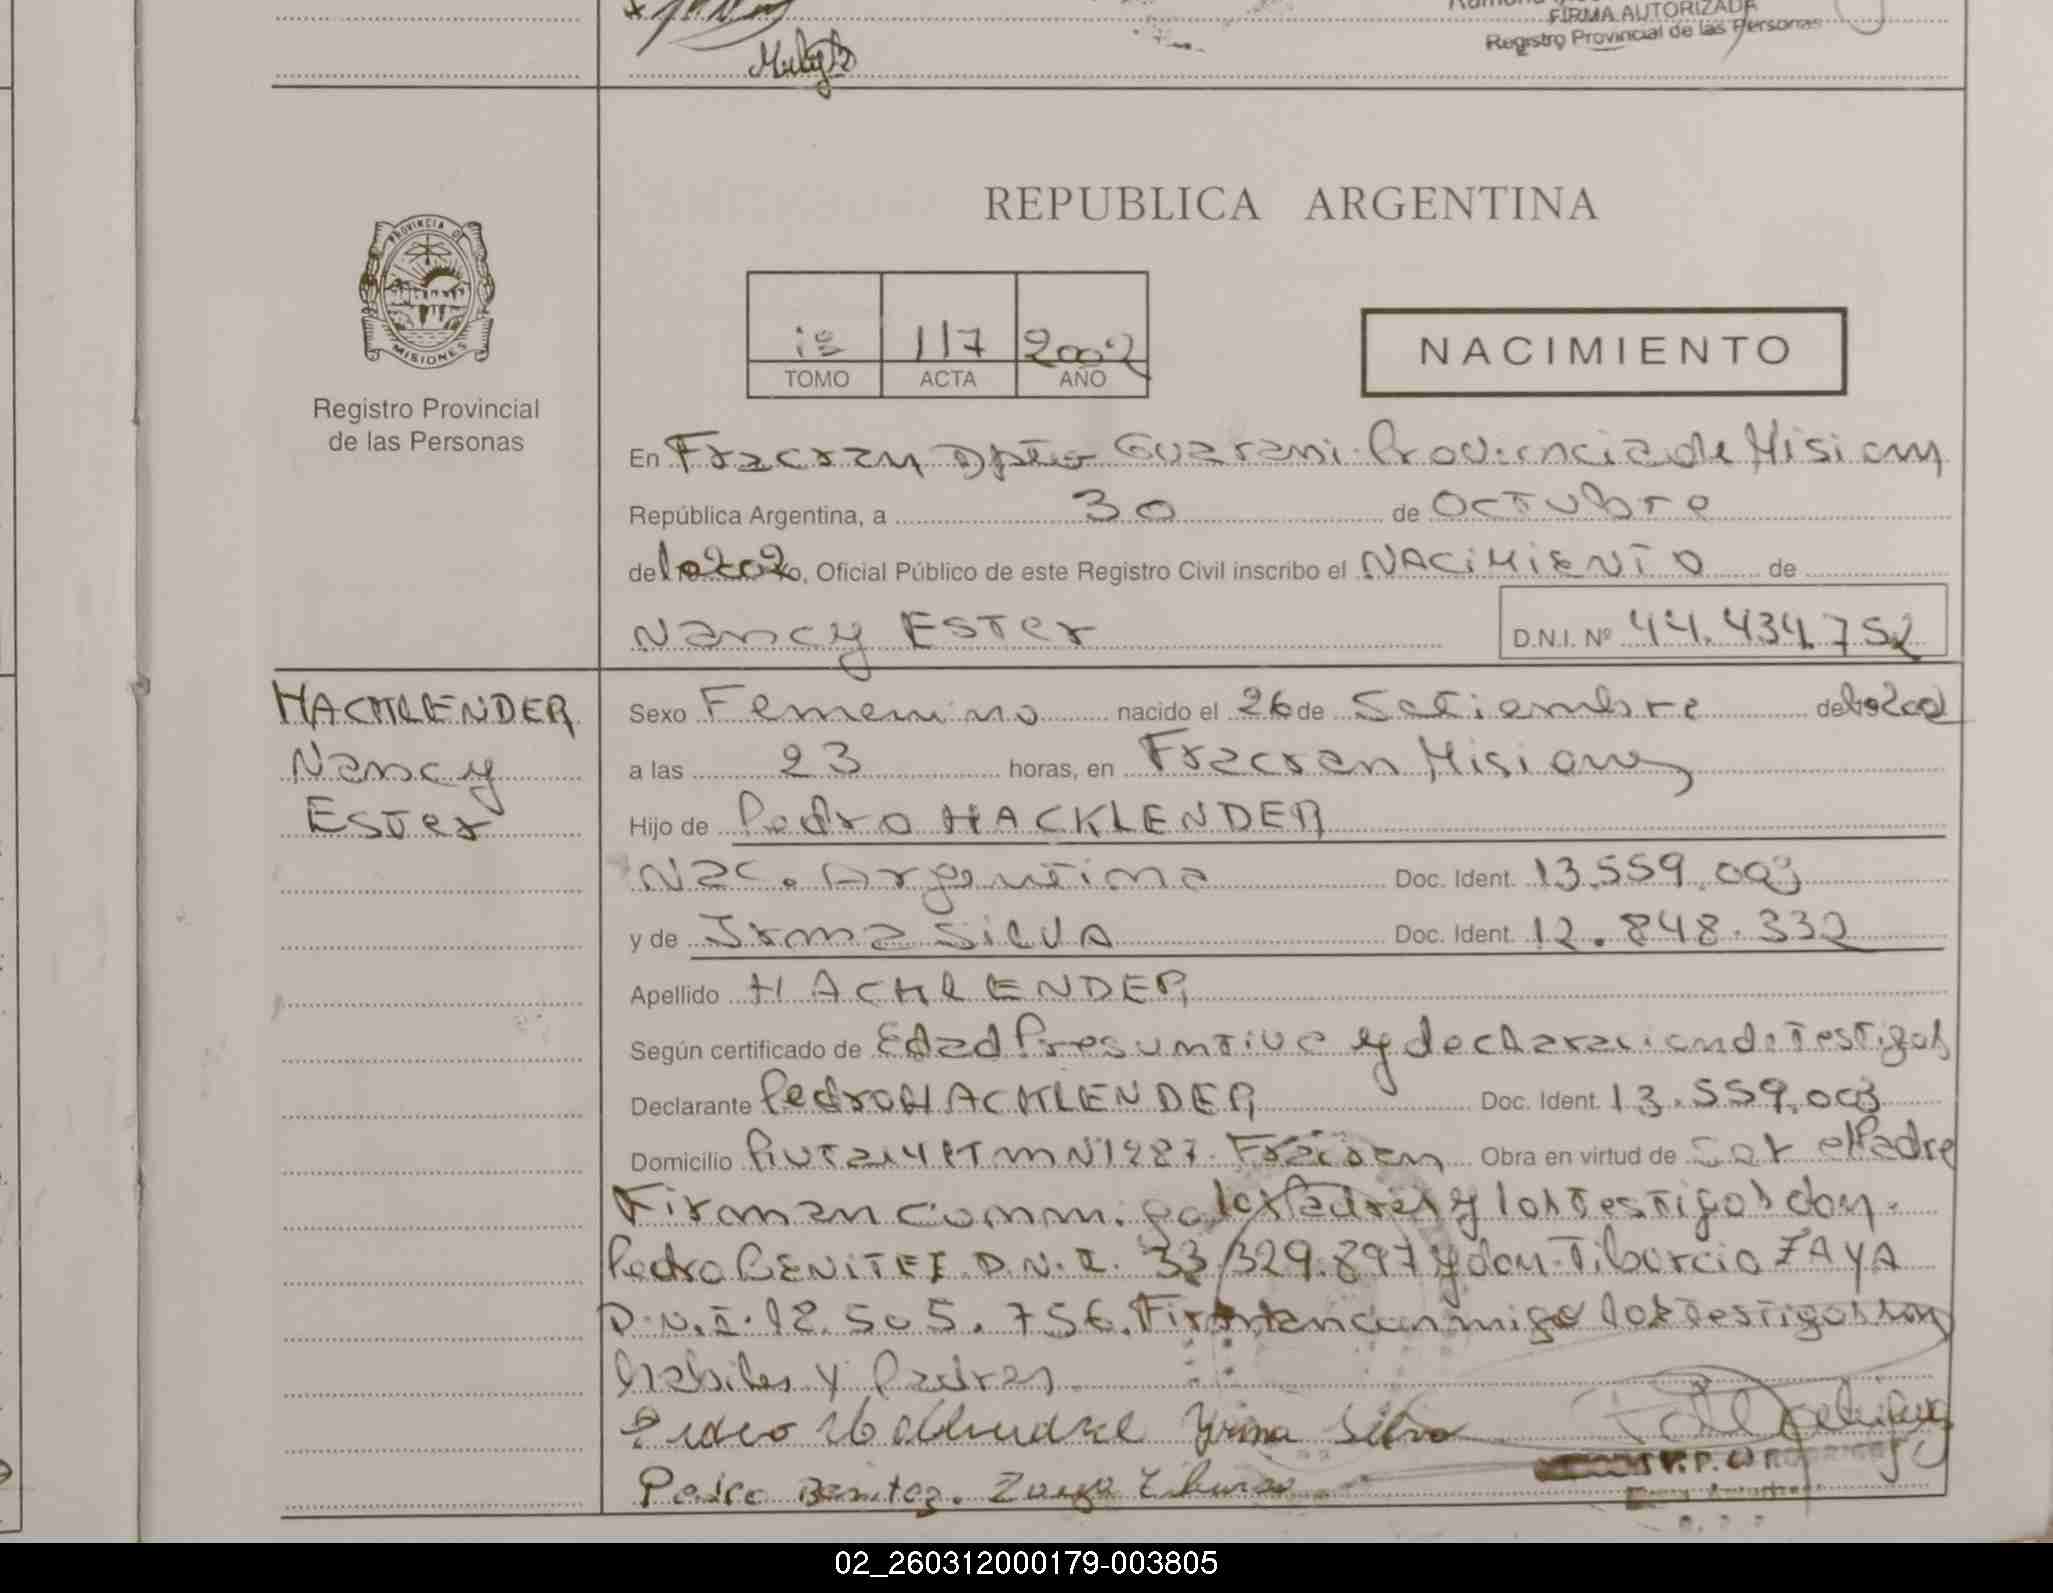 FIRMA AUTORIZADA
Registro Provincial de las Personas
PROVINCIA DE
MISIONES
Registro Provincial
de las Personas
REPUBLICA ARGENTINA
117 2002
TOMO ACTA AÑO
NACIMIENTO
En Fracran Dpto Guarani Provincia de Misiones
República Argentina, a 30 de Octubre
de 2002, Oficial Público de este Registro Civil inscribo el NACIMIENTO de
Nancy Ester D.N.I. Nº 44.434.752
HACKLENDER
Nancy
Ester
Sexo Femenino nacido el 26 de Setiembre de 2002
a las 23 horas, en Fracran Misiones
Hijo de Pedro HACKLENDER
Nac. Argentina Doc. Ident. 13.559.003
y de Irma SILVA Doc. Ident. 12.848.332
Apellido HACKLENDER
Según certificado de Edad Presuntiva y declaracion de Testigos
Declarante Pedro HACKLENDER Doc. Ident. 13.559.003
Domicilio Ruta 14 KTM Nº 1287. Fracran Obra en virtud de ser el Padre
Firman conm. los Padres y los Testigos don
Pedro BENITEZ D.N.I. 33.329.897 y don Tiburcio ZAYA
D.N.I. 12.505.756. Firman conmigo los testigos son
habiles y Padres
Pedro Irma Silva
Pedro Benitez. Zaya
02_260312000179-003805